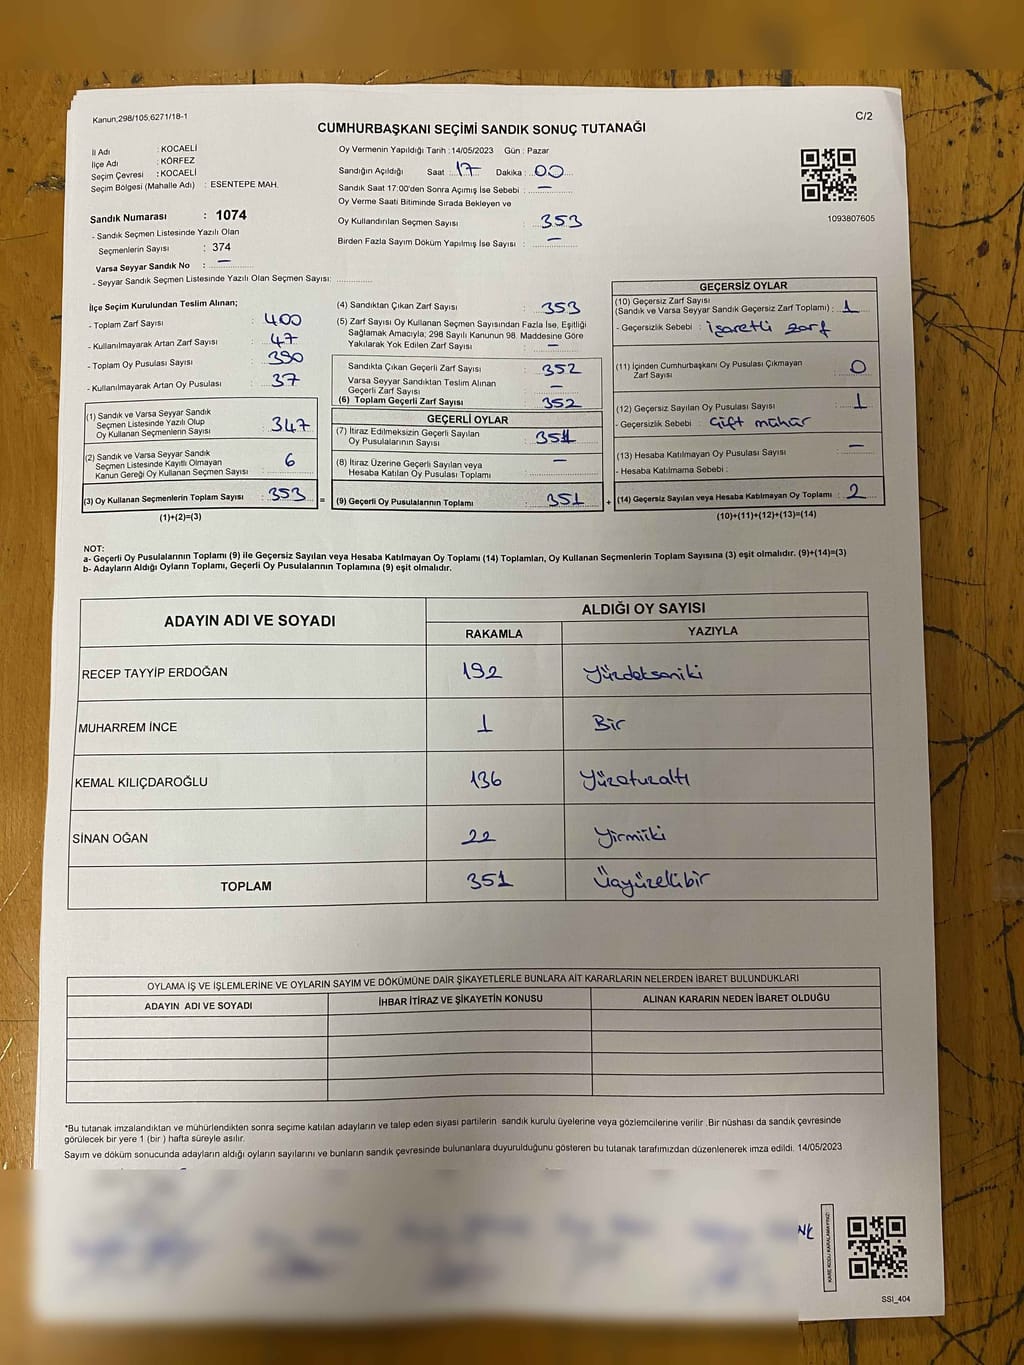 Kanun,298/105,6271/18-1
C/2
CUMHURBAŞKANI SEÇİMİ SANDIK SONUÇ TUTANAĞI
İl Adı : KOCAELİ
İlçe Adı : KÖRFEZ
Seçim Çevresi : KOCAELİ
Seçim Bölgesi (Mahalle Adı) : ESENTEPE MAH.
Sandık Numarası : 1074
- Sandık Seçmen Listesinde Yazılı Olan
Seçmenlerin Sayısı : 374
Varsa Seyyar Sandık No : —
- Seyyar Sandık Seçmen Listesinde Yazılı Olan Seçmen Sayısı:
Oy Vermenin Yapıldığı Tarih : 14/05/2023 Gün : Pazar
Sandığın Açıldığı Saat : 17 Dakika : 00
Sandık Saat 17:00'den Sonra Açımış İse Sebebi : —
Oy Verme Saati Bitiminde Sırada Bekleyen ve
Oy Kullandırılan Seçmen Sayısı : 353
Birden Fazla Sayım Döküm Yapılmış İse Sayısı : —
1093807605
İlçe Seçim Kurulundan Teslim Alınan;
- Toplam Zarf Sayısı : 400
- Kullanılmayarak Artan Zarf Sayısı : 47
- Toplam Oy Pusulası Sayısı : 390
- Kullanılmayarak Artan Oy Pusulası : 37
(1) Sandık ve Varsa Seyyar Sandık
Seçmen Listesinde Yazılı Olup
Oy Kullanan Seçmenlerin Sayısı : 347
(2) Sandık ve Varsa Seyyar Sandık
Seçmen Listesinde Kayıtlı Olmayan
Kanun Gereği Oy Kullanan Seçmen Sayısı : 6
(3) Oy Kullanan Seçmenlerin Toplam Sayısı : 353 =
(1)+(2)=(3)
(4) Sandıktan Çıkan Zarf Sayısı : 353
(5) Zarf Sayısı Oy Kullanan Seçmen Sayısından Fazla İse, Eşitliği
Sağlamak Amacıyla; 298 Sayılı Kanunun 98. Maddesine Göre
Yakılarak Yok Edilen Zarf Sayısı : —
Sandıkta Çıkan Geçerli Zarf Sayısı : 352
Varsa Seyyar Sandıktan Teslim Alınan
Geçerli Zarf Sayısı : —
(6) Toplam Geçerli Zarf Sayısı : 352
GEÇERLİ OYLAR
(7) İtiraz Edilmeksizin Geçerli Sayılan
Oy Pusulalarının Sayısı : 351
(8) İtiraz Üzerine Geçerli Sayılan veya
Hesaba Katılan Oy Pusulası Toplamı : —
(9) Geçerli Oy Pusulalarının Toplamı : 351 +
GEÇERSİZ OYLAR
(10) Geçersiz Zarf Sayısı
(Sandık ve Varsa Seyyar Sandık Geçersiz Zarf Toplamı) : 1
- Geçersizlik Sebebi : işaretli zarf
(11) İçinden Cumhurbaşkanı Oy Pusulası Çıkmayan
Zarf Sayısı : 0
(12) Geçersiz Sayılan Oy Pusulası Sayısı : 1
- Geçersizlik Sebebi : Çift mühür
(13) Hesaba Katılmayan Oy Pusulası Sayısı : —
- Hesaba Katılmama Sebebi :
(14) Geçersiz Sayılan veya Hesaba Katılmayan Oy Toplamı : 2
(10)+(11)+(12)+(13)=(14)
NOT:
a- Geçerli Oy Pusulalarının Toplamı (9) ile Geçersiz Sayılan veya Hesaba Katılmayan Oy Toplamı (14) Toplamları, Oy Kullanan Seçmenlerin Toplam Sayısına (3) eşit olmalıdır. (9)+(14)=(3)
b- Adayların Aldığı Oyların Toplamı, Geçerli Oy Pusulalarının Toplamına (9) eşit olmalıdır.
ADAYIN ADI VE SOYADI
ALDIĞI OY SAYISI
RAKAMLA YAZIYLA
RECEP TAYYİP ERDOĞAN 192 Yüzdoksaniki
MUHARREM İNCE 1 Bir
KEMAL KILIÇDAROĞLU 136 Yüzotuzaltı
SİNAN OĞAN 22 Yirmiiki
TOPLAM 351 Üçyüzellibir
OYLAMA İŞ VE İŞLEMLERİNE VE OYLARIN SAYIM VE DÖKÜMÜNE DAİR ŞİKAYETLERLE BUNLARA AİT KARARLARIN NELERDEN İBARET BULUNDUKLARI
ADAYIN ADI VE SOYADI İHBAR İTİRAZ VE ŞİKAYETİN KONUSU ALINAN KARARIN NEDEN İBARET OLDUĞU
*Bu tutanak imzalandıktan ve mühürlendikten sonra seçime katılan adayların ve talep eden siyasi partilerin sandık kurulu üyelerine veya gözlemcilerine verilir .Bir nüshası da sandık çevresinde
görülecek bir yere 1 (bir ) hafta süreyle asılır.
Sayım ve döküm sonucunda adayların aldığı oyların sayılarını ve bunların sandık çevresinde bulunanlara duyurulduğunu gösteren bu tutanak tarafımızdan düzenlenerek imza edildi. 14/05/2023
KARE KODU KARALAMAYINIZ!
SSI_404